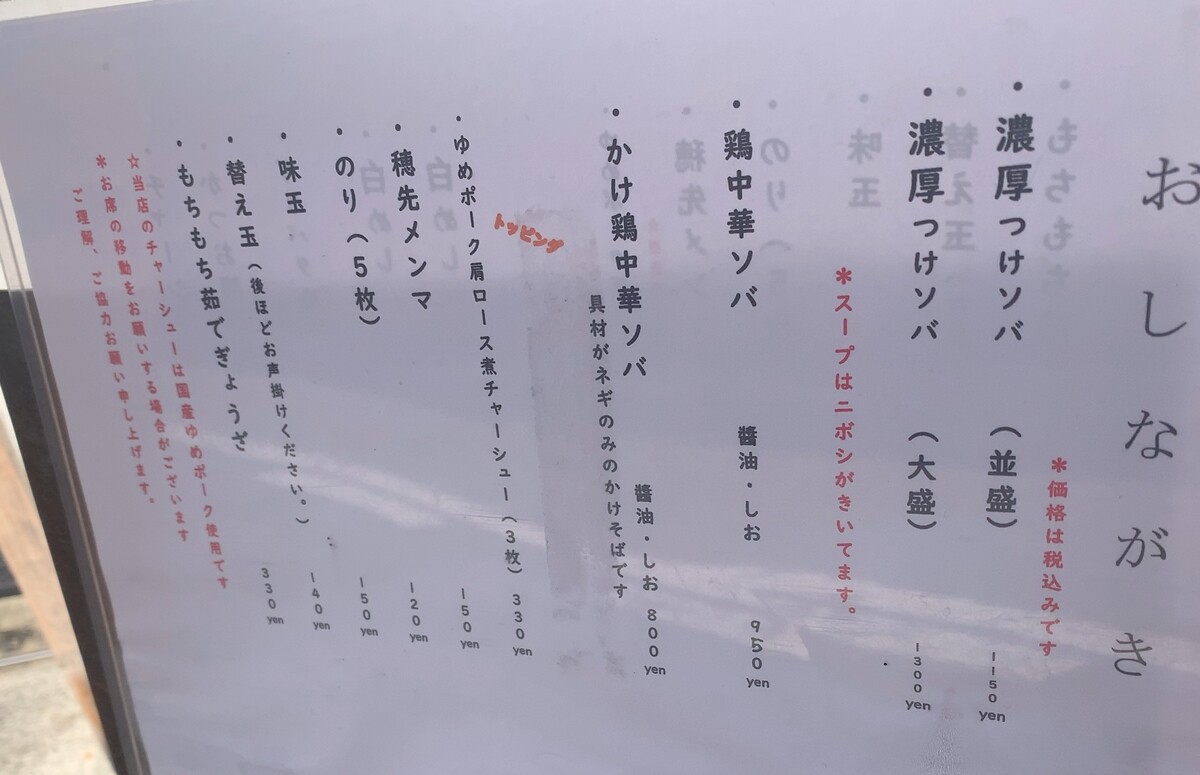 おしながき
＊価格は税込みです
・濃厚つけソバ（並盛）1150yen
・濃厚つけソバ（大盛）1300yen
＊スープはニボシがきいてます。
・鶏中華ソバ 醬油・しお 950yen
・かけ鶏中華ソバ 醬油・しお 800yen
具材がネギのみのかけそばです
トッピング
・ゆめポーク肩ロース煮チャーシュー（3枚）330yen
・穂先メンマ 150yen
・のり（5枚）120yen
・味玉 150yen
・替え玉（後ほどお声掛けください。）140yen
・もちもち茹でぎょうざ 330yen
☆当店のチャーシューは国産ゆめポーク使用です
＊お席の移動をお願いする場合がございます
ご理解、ご協力お願い申し上げます。